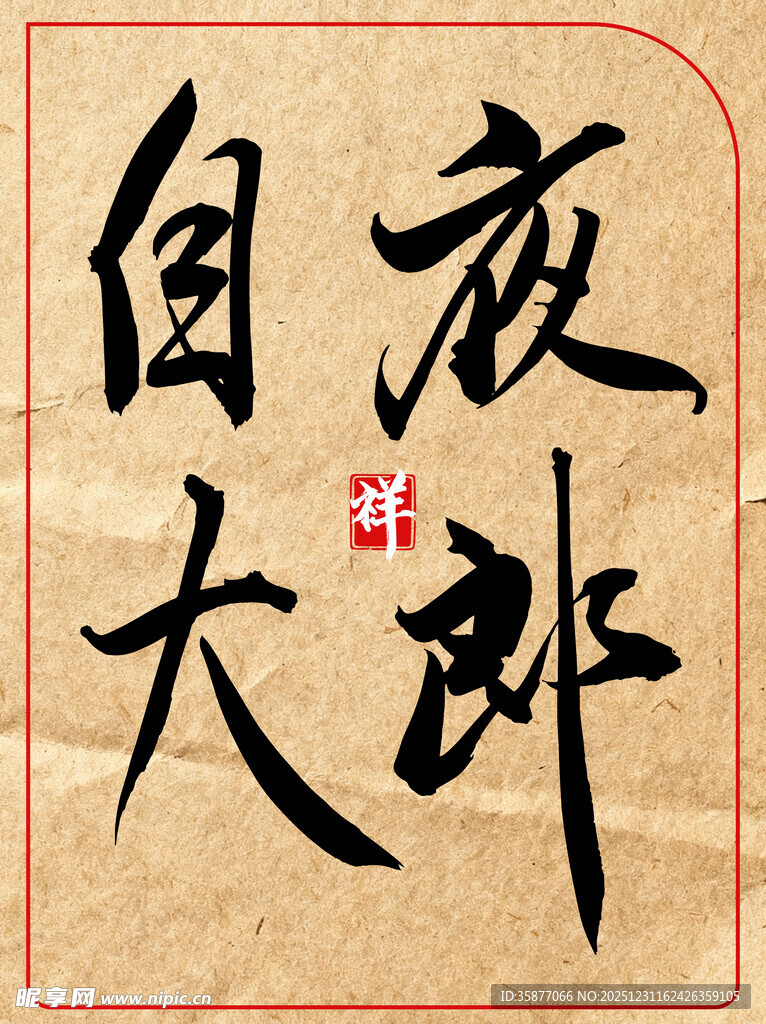 夜郎
自大
祥
昵享网 www.nipic.cn
ID:35877066 NO:20251231162426359105